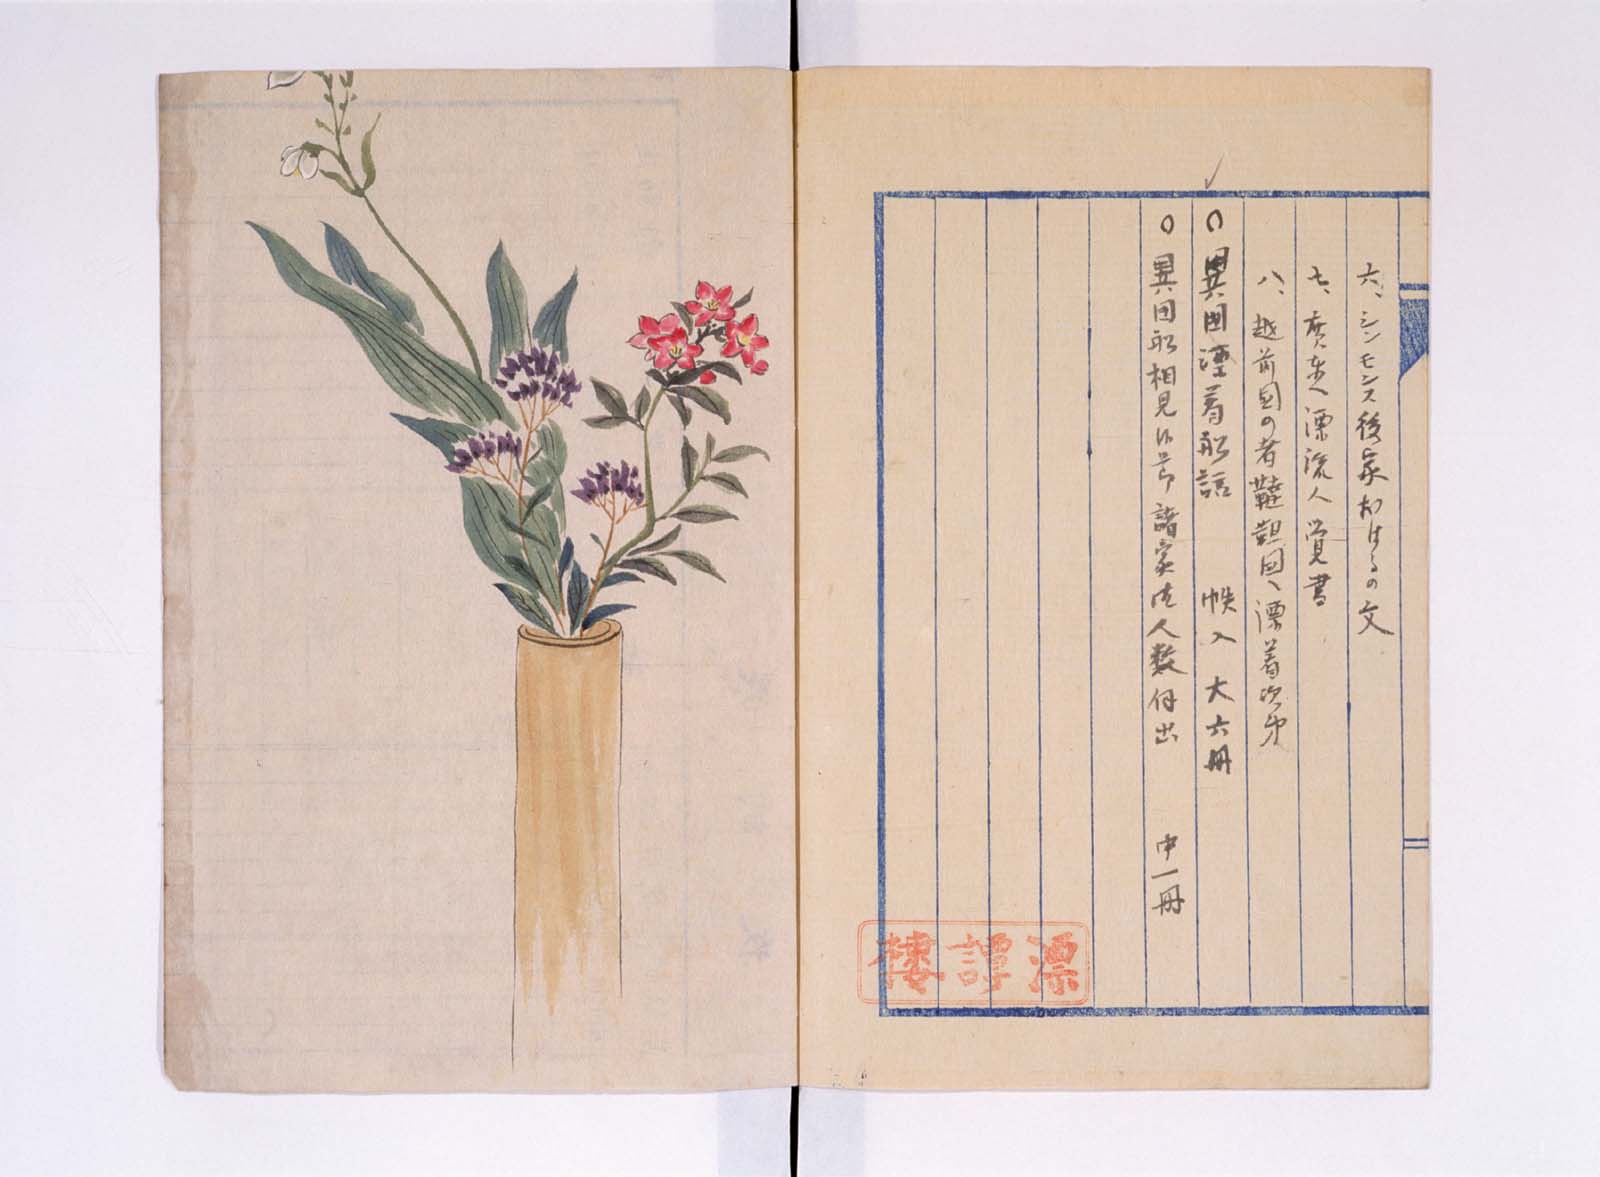 六、シンモンス後家おはるの文
七、広東へ漂流人覚書
八、越前国の者韃靼国へ漂着次第
○異国漂着船話 帙入 大六冊
○異国船相見候節諸家は人数付出 中一冊
漂譚楼